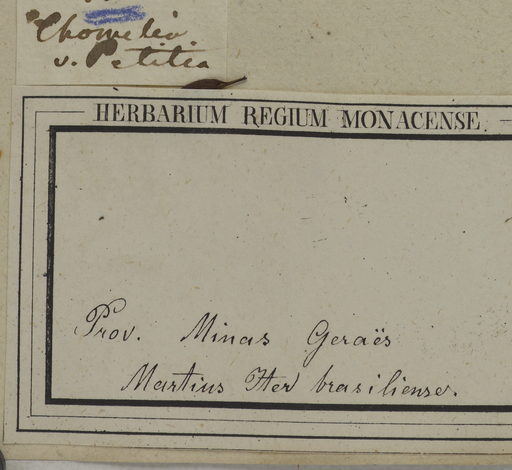 Chomelia
v. Petitia
HERBARIUM REGIUM MONACENSE.
Prov. Minas Geraës
Martius Iter brasiliense.